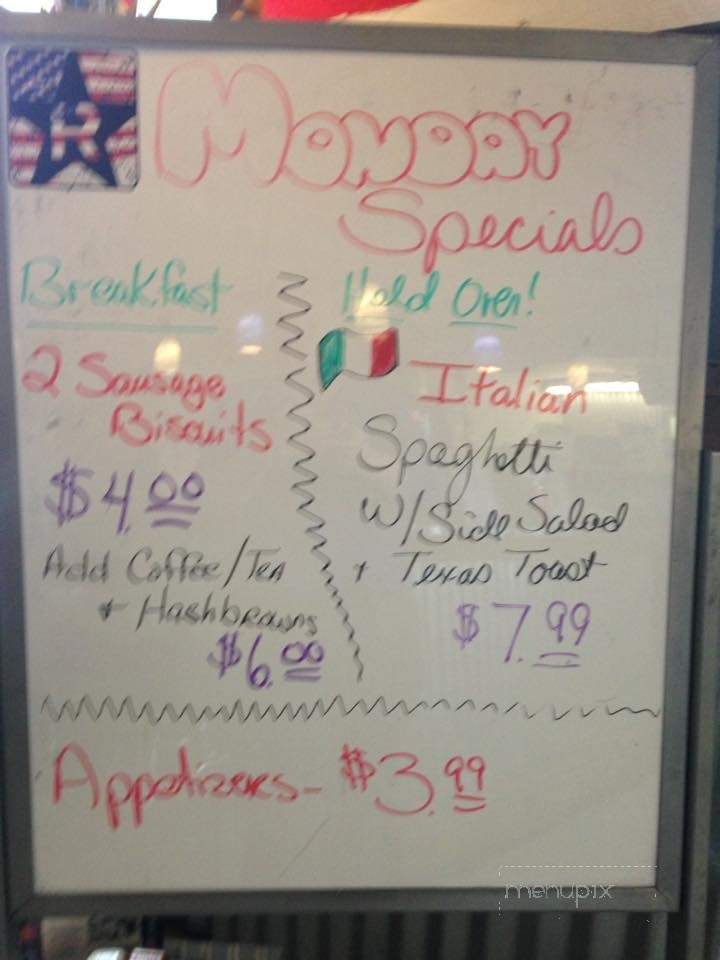 R
Monday
Specials
Breakfast
2 Sausage
Biscuits
$4.00
Add Coffee/Tea
+ Hashbrowns
$6.00
Hold Over!
Italian
Spaghetti
w/ Side Salad
+ Texas Toast
$7.99
Appetizers - $3.99
menupix